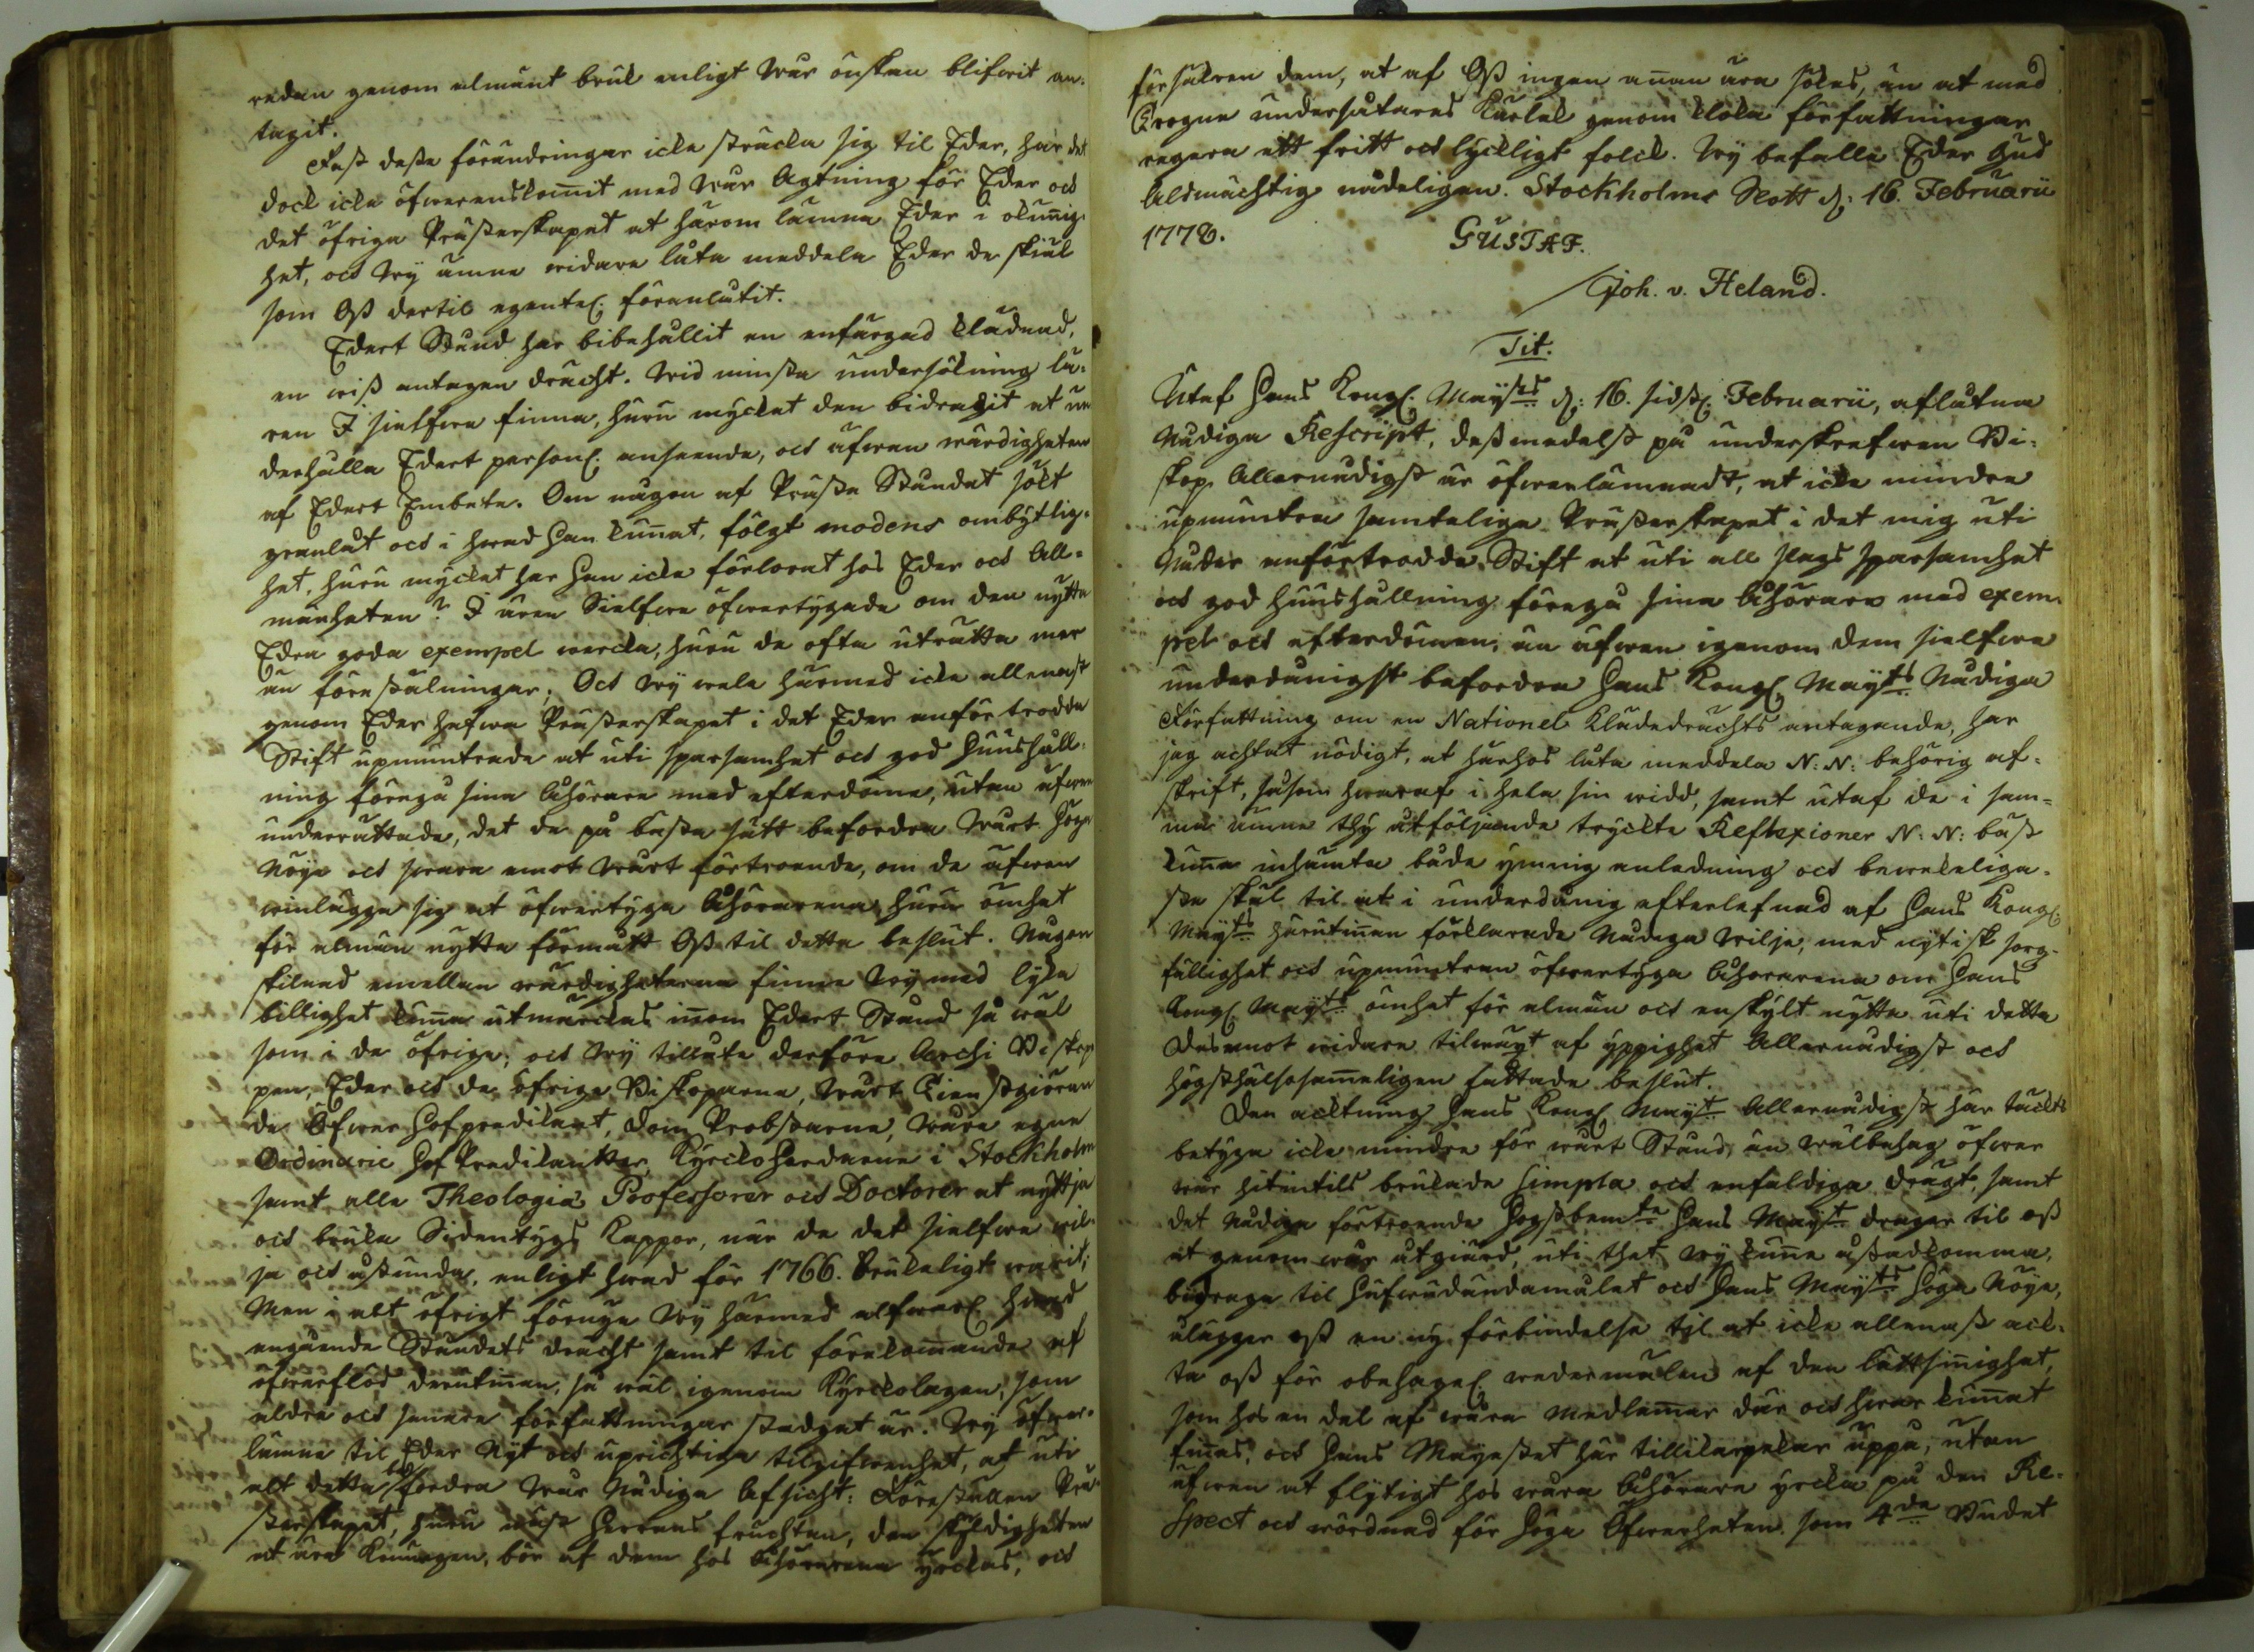 redan genom almänt bruk enligt Wår önskan blifwit an-
tagit.
Fast dessa förändringar icke sträcka sig til Eder, har det
dock icke öfwerenskom̅it med Wår Agtning för Eder och
det öfriga Prästerskapet at härom lämna Eder i okun̅ig-
het, och Wÿ ämne widare låta meddela Eder de skiäl
som Oss dertil egentel: föranlåtit.
Edert Stånd har bibehållit en enfärgad klädnad,
en wiss antagen drächt. Wid minsta undersökning lä-
ren I sielfwe finna, huru mÿcket den bidragit at un
derhålla Edert personl: anseende, och äfwen wärdigheten
af Edert Embete. Om någon af Präste Ståndet sökt
granlåt och i hwad han kun̅at, fölgt modens ombÿtlig-
het, huru mÿcket har han icke förlorat hos Eder och All-
mänheten? I ären Sielfwe öfwertÿgade om den nÿtta
Edra goda exempel wercka, huru de ofta uträtta mer
än föreställningar; Och Wÿ wele härmed icke allenast
genom Eder hafwa Prästerskapet i det Eder anförtrodde
Stift upmuntrade at uti sparsamhet och god hushåll-
ning föregå sina Åhörare med efterdöme, utan äfwen
underrättade, det de på bästa sätt befordra Wårt höga
Nöÿe och swara emot Wårt förtroende, om de äfwen
winlägga sig at öfwertÿga Åhörarena huru ömhet
för almän nÿtta förmått Oss til detta beslut. Någon
skilnad emellan wärdigheterna finne Wÿ med lÿka
billighet kun̅a utmärckas inom Edert Stånd så wäl
som i de öfriga; och Wÿ tillåte derföre Archi Biskop
pen, Eder och de öfriga Biskoparna, Wårt Tienstgiöran
de Öfwer Hofpredikant, Dom Probstarne, Wåre egne
Ordinarie Hof Predikanter, Kÿrckoherdarne i Stockholm
samt alle Theologiæ Professorer och Doctorer at nÿttja
och bruka Sidentÿgs Kappor, när de det sielfwe wil-
ja och åstunda, enligt hwad för 1766. brukeligt warit;
Men i alt öfrigt förnÿe Wÿ härmed alfwarl: hwad
angående Ståndets drächt samt til förekom̅ande af
öfwerflöd derutin̅an, så wäl igenom Kÿrckolagen, som
äldre och senare författningar stadgat är. Wÿ öfwer-
lämne til Eder Nÿt och uprichtiga tilgifwenhet, at uti
alt detta befordra Wår Nådiga Afsicht: Föreställen Prä-
sterskapet, huru näst Herrans fruchtan, den skÿldigheten
at ära Konungen, bör af dem hos Åhörarena ÿrckas, och
försäkren dem, at af Oss ingen an̅an ära sökes, än at med
Trogne undersåtares Kärlek genom kloka författningar
regera ett fritt och lÿckligt folck. Wÿ befalle Eder Gud
Aldmächtig nådeligen. Stockholms Slott d: 16. Februarii
1778. GUSTAF.
Joh. v. Heland.
Tit.
Utaf Hans Kongl: Maÿts d: 16. sidstl: Februarii, aflåtna
Nådiga Rescript, dessmedelst på underskrefwen Bi-
skop Allernådigst är öfwerlämnadt, at icke mindre
upmuntra samtelige Prästerskapet i det mig uti
Nåder anförtrodde Stift at uti all slags sparsamhet
och god hushållning föregå sina Åhörare med exem-
pel och efterdömen, än äfwen igenom dem sielfwe
underdånigst befordra Hans Kongl: Maÿts Nådiga
Författning om en Nationel Klädedrächts antagande, har
jag achtat nödigt, at härhos låta meddela N: N: behörig af-
skrift, såsom hwaraf i hela sin widd, samt utaf de i sam-
ma ämne thÿ åtföljande trÿckte Reflexioner N: N: bäst
kun̅a inhämta både ÿmnig anledning och bewekeliga-
ste skäl til at i underdånig efterlefnad af Hans Kongl:
Maÿts härutin̅an förklarade Nådiga Wilje, med nÿtisk sorg-
fällighet och upmuntran öfwertÿga Åhörarena om Hans
Kongl: Maÿts ömhet för almän och enskÿlt nÿtta uti detta
däremot widare tilwäxt af ÿppighet Allernådigst och
högsthälsosam̅eligen fattade beslut.
Den acktning Hans Kongl: Maÿt Allernådigst har täckts
betÿga icke mindre för wårt Stånd, än wälbehag öfwer
wår hitintils brukade simpla och enfaldiga drägt, samt
det Nådiga förtroende Högstbemte Hans Maÿt drager til oss
at genom wår åtgiärd, uti thet wÿ kun̅e åstadkomma,
bidraga til hufwudändamålet och Hans Maÿts höga Nöÿe,
ålägger oss en nÿ förbindelse til at icke allenast ack-
ta oss för obehagel: wedermälen af den lättsin̅ighet,
som hos en del af wåra Medlemar där och hwar kun̅at
fin̅as, och Hans Maÿestet här tillika pekar uppå, utan
äfwen at flÿtigt hos wåra Åhörare ÿrcka på den Re-
spect och wördnad för höga Öfwerheten som 4de Budet